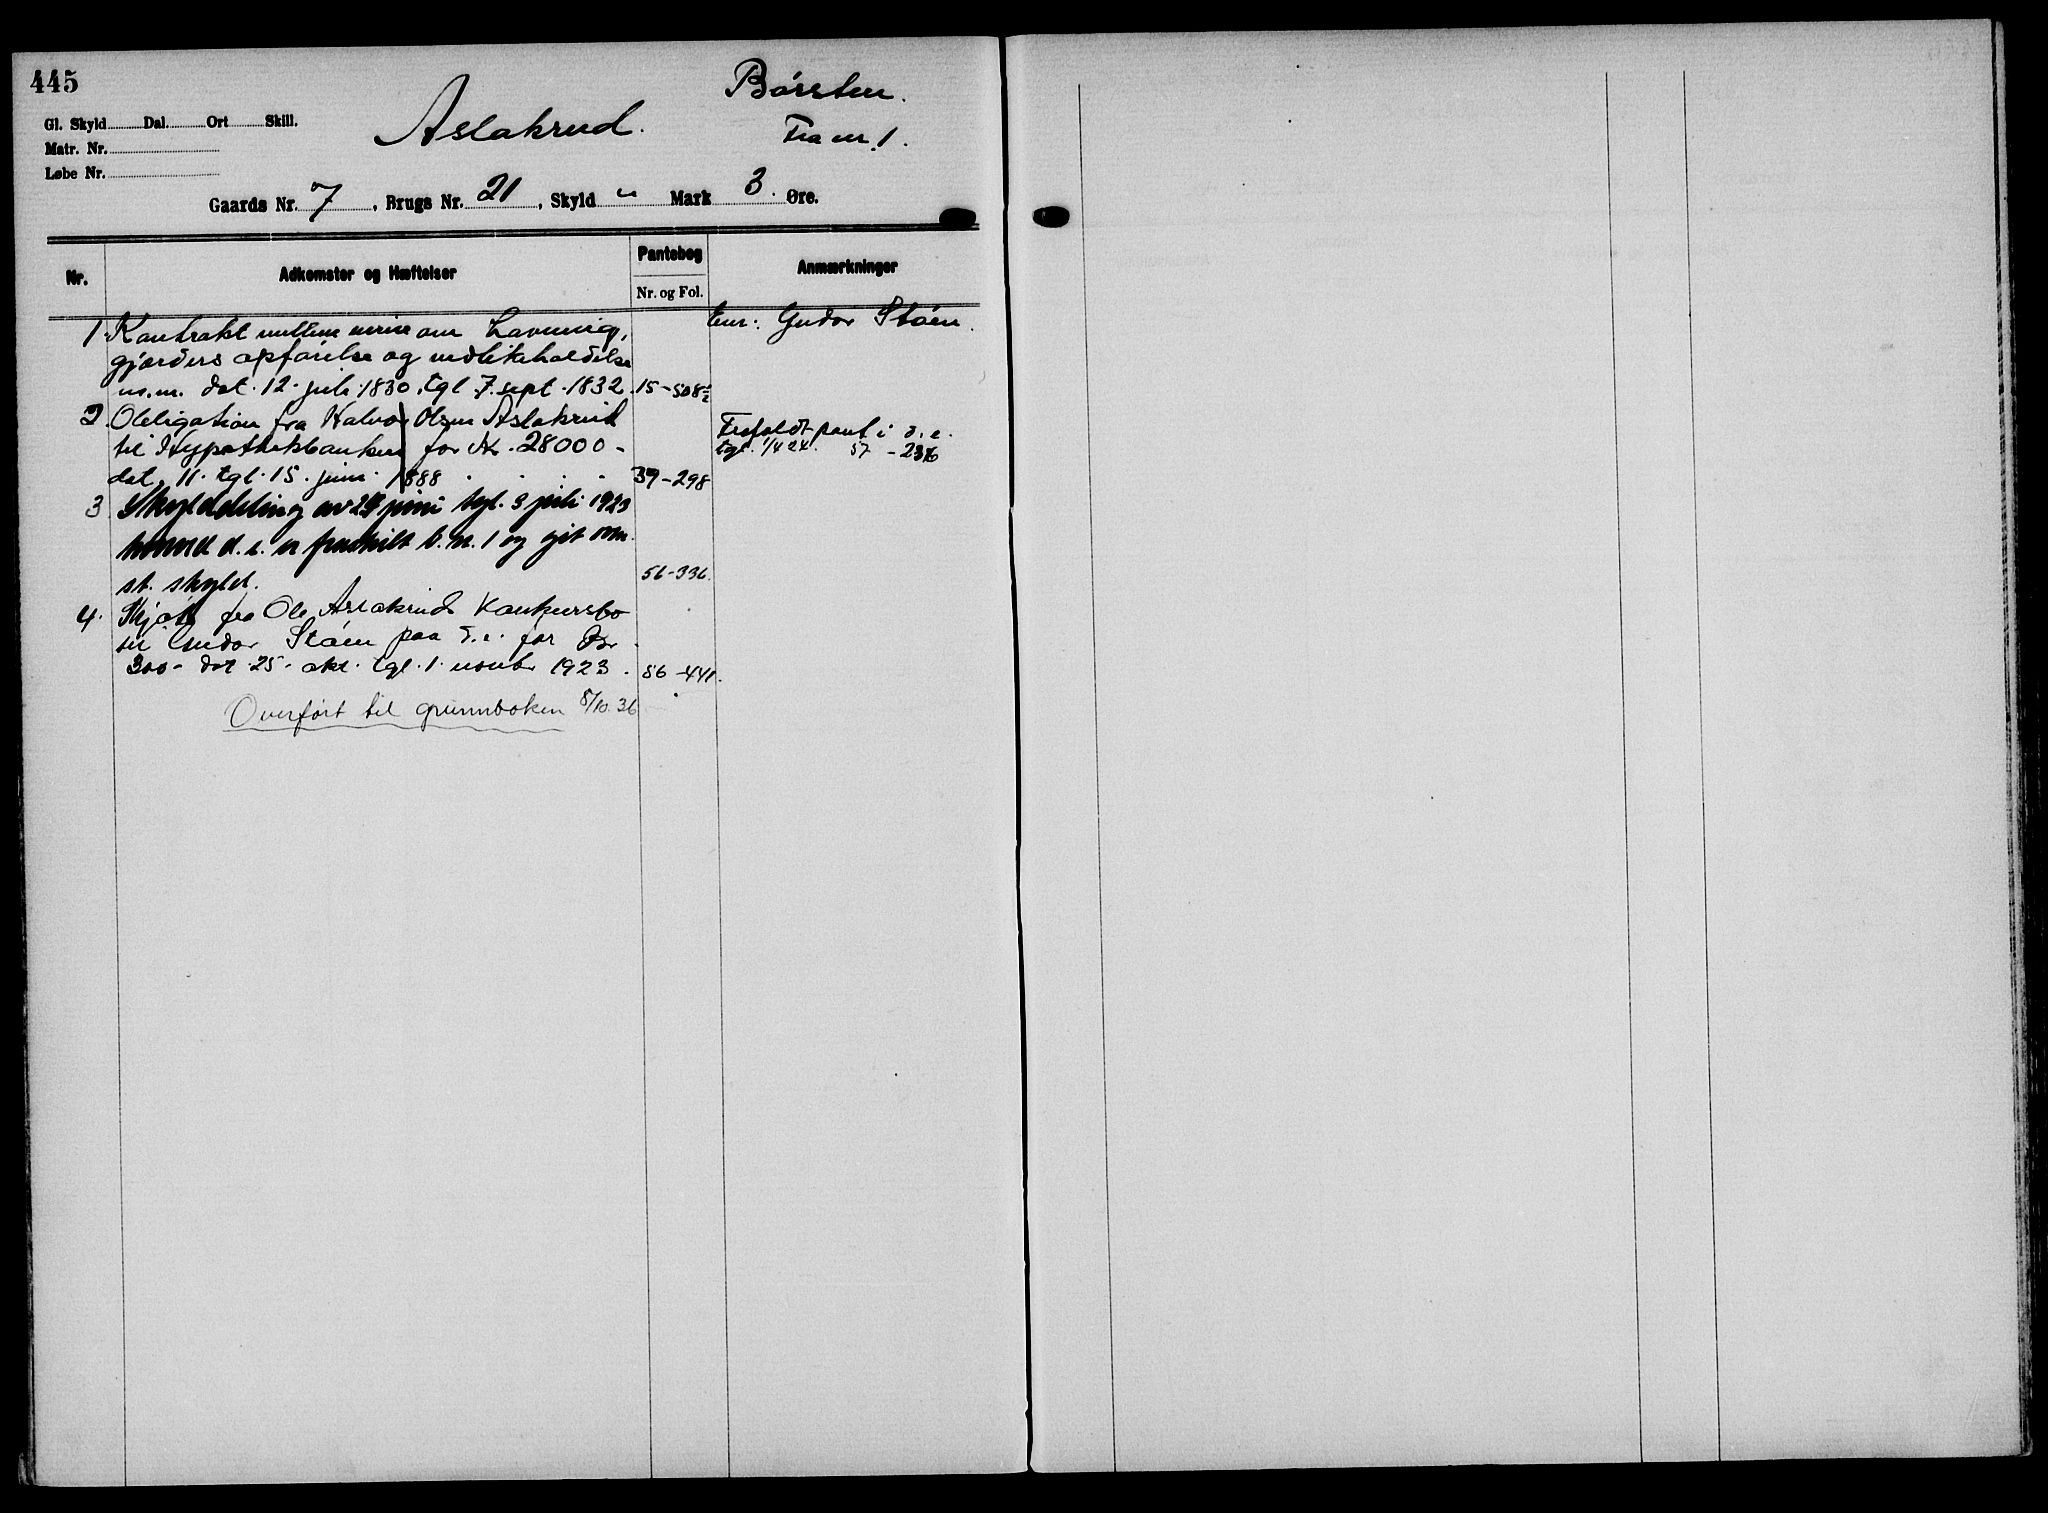 445
Børsten.
Aslakrud.
Fra nr. 1.
Gl. Skyld Dal. Ort Skill.
Matr. Nr.
Løbe Nr.
Gaards Nr. 7, Brugs Nr. 21, Skyld " Mark 3. Øre.
Nr. Adkomster og Hæftelser Pantebog Nr. og Fol. Anmærkninger
Eier: Gudor Støen.
1. Kontrakt mellem eierne om Havning,
gjærders opførelse og vedlikeholdelse
m.m. dat. 12. juli 1830, tgl. 7. sept. 1832. 15-508
2. Obligation fra Halvor Olsen Aslakrud
til Hypothekbanken for Kr. 28000-
dat. 11. tgl. 15. juni 1888 39-298
Frafaldt pant i d. e.
tgl. 1/4 24. 57-236
3 Skylddeling av 29 juni tgl. 3 juli 1923
hvorved d. e. er fraskilt b. n. 1 og git ovn.
st. skyld. 56-336.
4. Skjøte fra Ole Aslakruds Konkursbo
til Gudor Støen paa d. e. for Kr.
300- dat. 25. okt. tgl. 1. novbr 1923. 56-441.
Overført til grunnboken 8/10.36